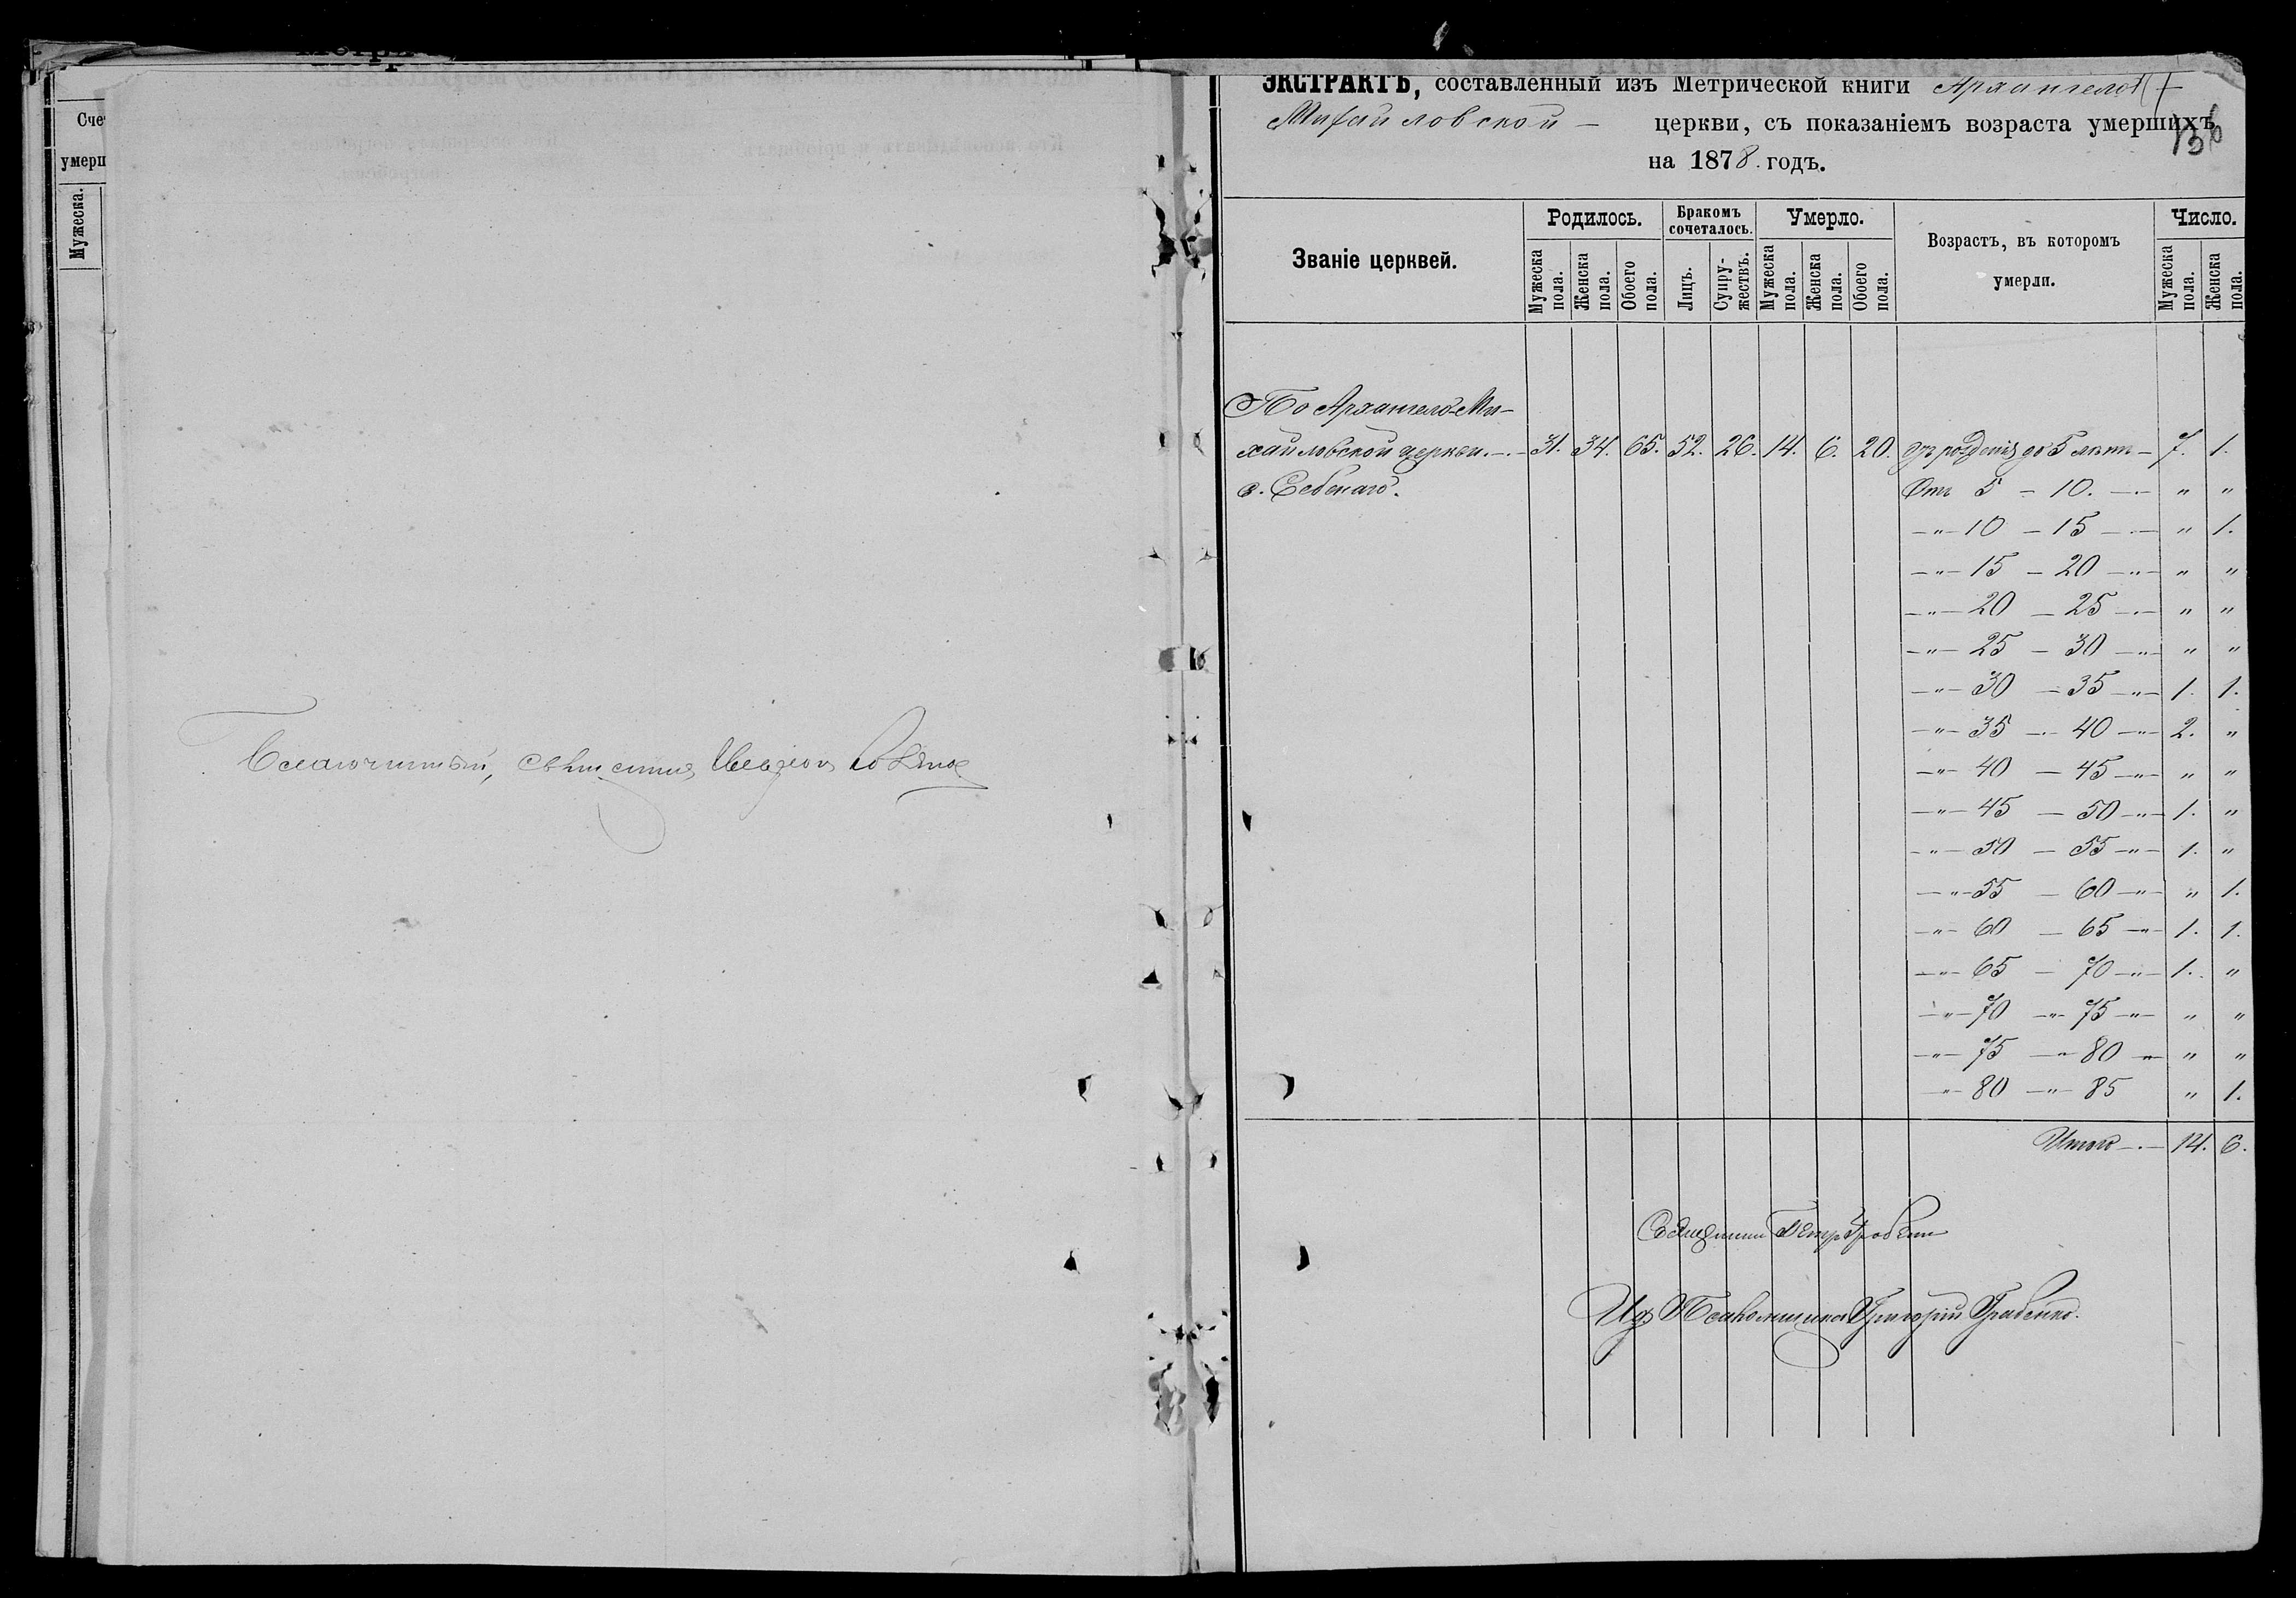 Сче
умерш
Мужеска.
Благочинный, Священникъ
ЭКСТРАКТЪ, составленный изъ Метрической книги Архангело
Михайловской — церкви, съ показаніемъ возраста умершихъ
136
на 1878. годъ.
Званіе церквей. Родилось. Бракомъ сочеталось. Умерло. Возрастъ, въ которомъ умерли. Число.
Мужеска пола. Женска пола. Обоего пола. Лицъ. Супружествъ. Мужеска пола. Женска пола. Обоего пола. Мужеска пола. Женска пола.
По Архангело-Ми-
хайловской церкви. — 31. 34. 65. 52. 26. 14. 6. 20. до 5 лѣтъ — 7. 1.
с.
Отъ 5 — 10. — " "
—"— 10 — 15 — " 1.
—"— 15 — 20 —"— " "
—"— 20 — 25 — " "
—"— 25 — 30 —"— " "
—"— 30 — 35 —"— 1. 1.
—"— 35 — 40 —"— 2. "
—"— 40 — 45 —"— " "
—"— 45 — 50 —"— 1. "
—"— 50 — 55 —"— 1. "
—"— 55 — 60 —"— " 1.
—"— 60 — 65 —"— 1. 1.
—"— 65 — 70 —"— 1. "
—"— 70 —"— 75 —"— " "
—"— 75 —"— 80 —"— " "
—"— 80 —"— 85 " 1.
Итого — 14. 6.
Священникъ Петръ
Псаломщика Григорій